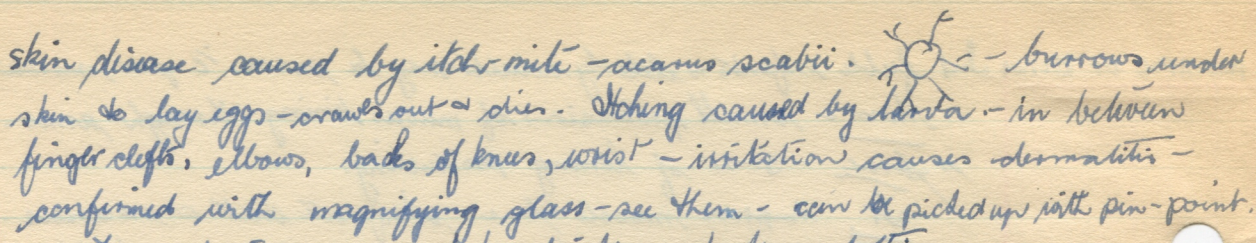 skin disease caused by itch-mite - acarus scabii. - burrows under
skin to lay eggs - crawls out & dies. Itching caused by larva. - in between
finger clefts, elbows, backs of knees, wrist - irritation causes dermatitis -
confirmed with magnifying glass - see them - can be picked up with pin-point.